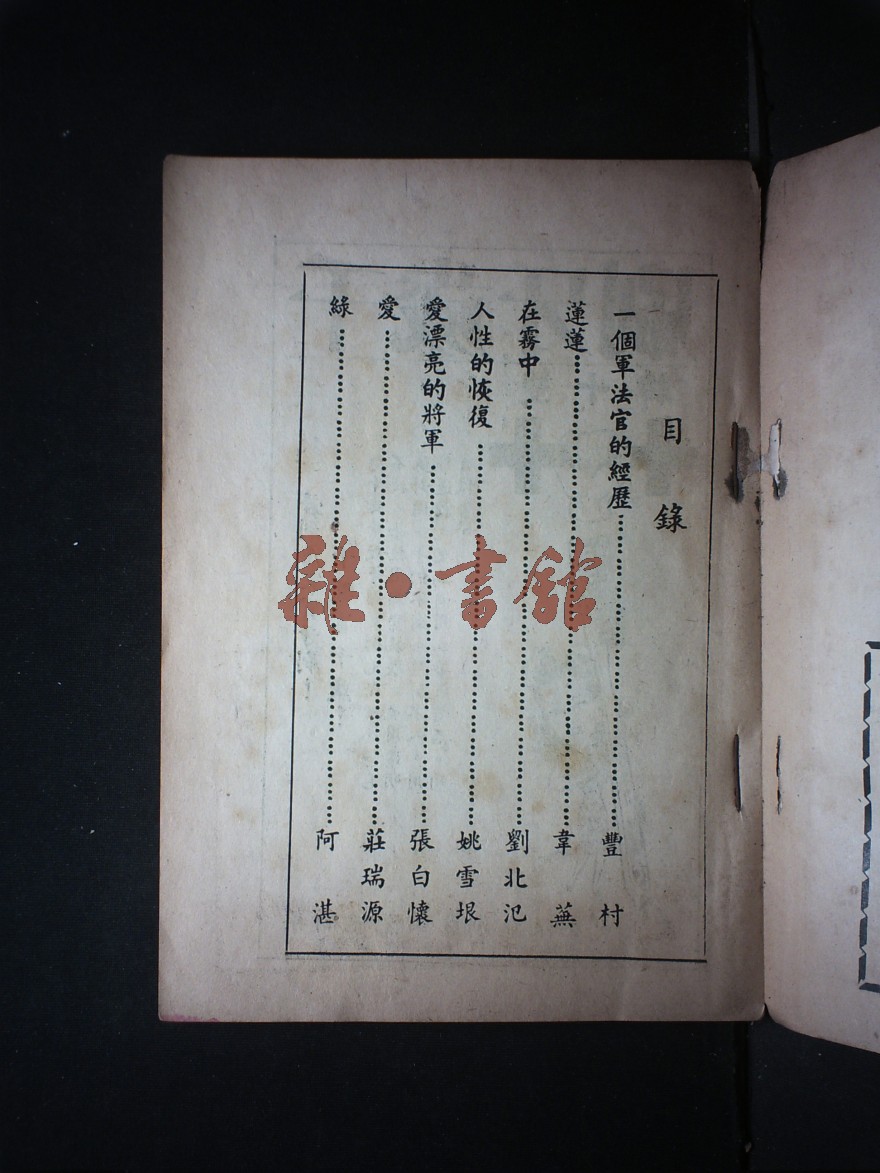 目錄
一個軍法官的經歷……豐村
蓮蓮……韋蕪
在霧中……劉北汜
人性的恢復……姚雪垠
愛漂亮的將軍……張白懷
愛……莊瑞源
綠……阿湛
雜·書館